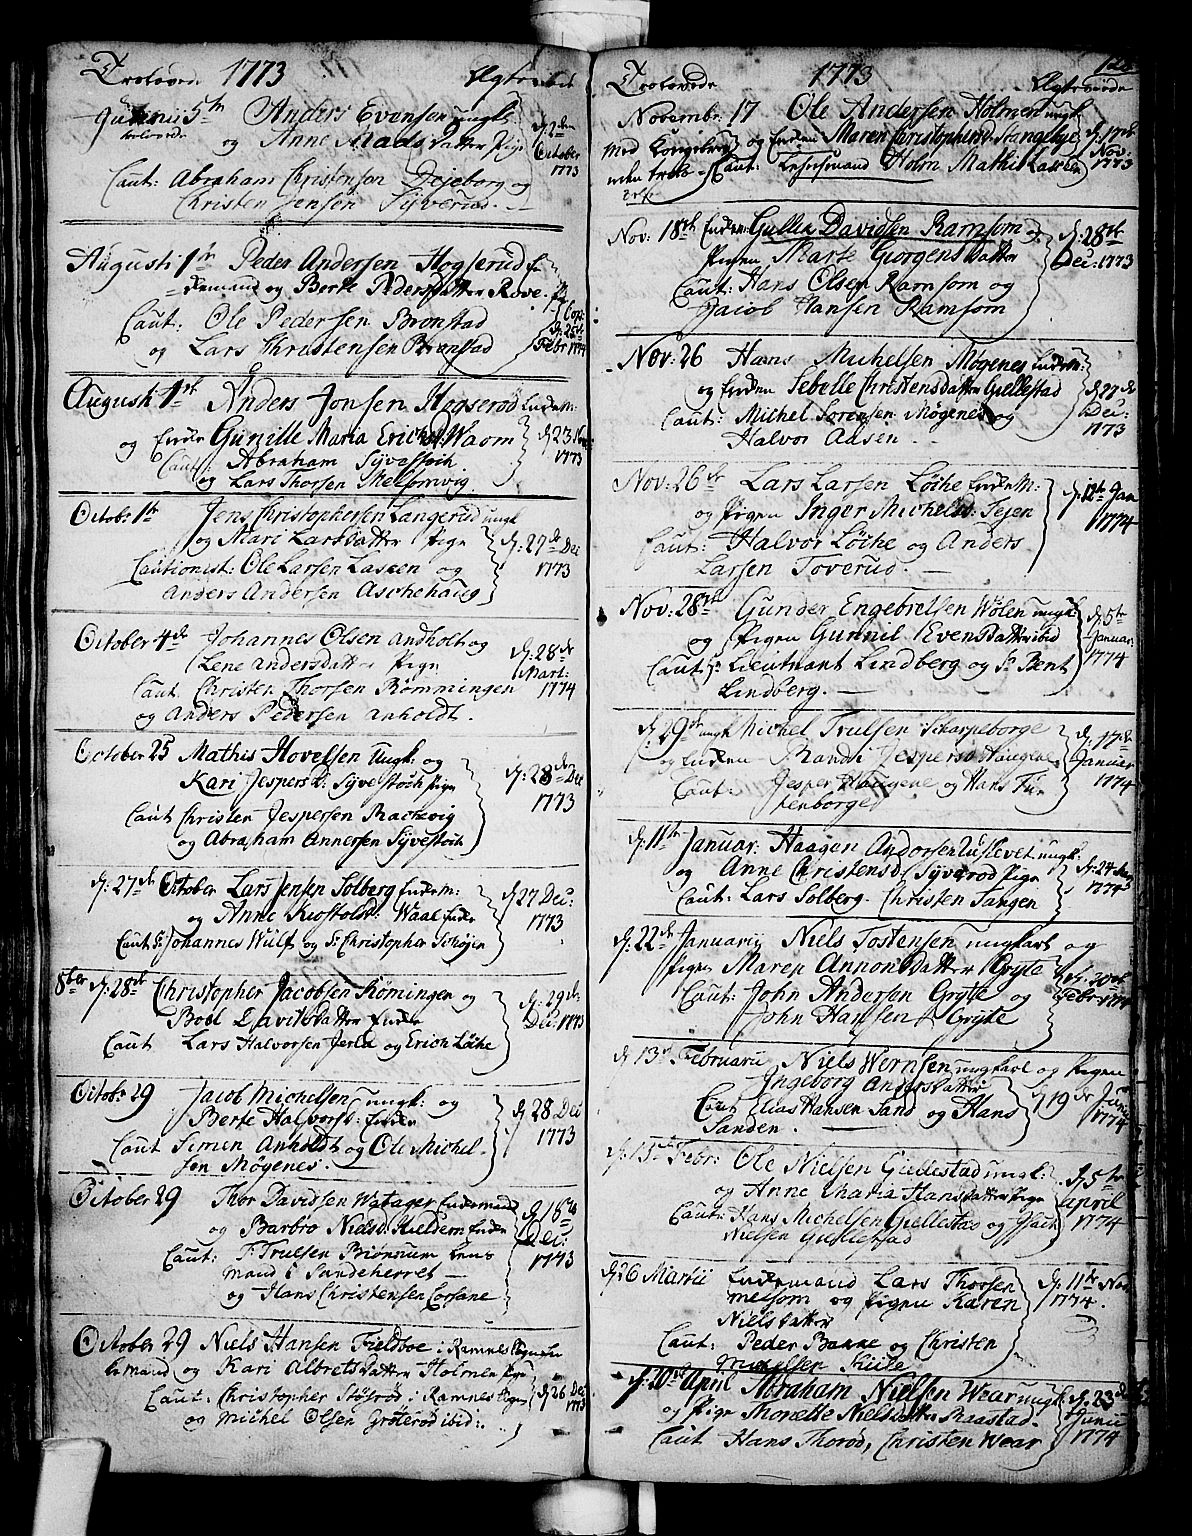 Trolovede 1773 Ægteviede
Junii 5te Anders Evensen ungk:
trolovede og Anne Mads Datter Pige
d. 2den October 1773
Caut: Abraham Christensen Dejeborg og
Christen Jensen Syverud.
Augusti 1te Peder Andersen Hogserud En-
kemand og Berte Peders datter Rove.
Cop: d. 25de Febr 1774
Caut: Ole Pedersen Bronstad
og Lars Christensen Bronstad
August 1te Anders Jonsen Hogserød Enkem:
og Enken Gunille Maria Erichs: Waom
d. 23 1773
Caut: Abraham Syvestoch
og Lars Thorsen Melsomvig.
Octobr: 1te Jens Christophersen Langerud ungk
og Mari Larsdatter Pige
d. 27de Dec 1773
Cautionist: Ole Larsen Lasken og
Anders Andersen Aschehaug
October 4de Johannes Olsen andholt og
Lene andersdatter Pige
d. 28de Mart: 1774
Caut Christen Thorsen Rømmingen
og Anders Pedersen anholdt.
October 25 Mathis Hovelsen Ungk: og
Kari Jespersd: Syvestoch Pige
d. 28de Dec 1773
Caut Christen Jespersen Rachevig
og Abraham Annersen Syvestoch
d. 27de October Lars Jensen Solberg Enkem:
og Anne Kiøstolsd: Waal Enke
d 27 Dec: 1773
Caut Sr: Johannes Wulf og Sr Christopher Schøjen
8ber d. 28de Christopher Jacobsen Kømingen og
Boel Davitsdatter Enke
d. 29de Dec: 1773
Caut Lars Halvorsen Jerla og Erich Løche
Octobr: 29 Jacob Michelsen ungk: og
Berte Halvorsd: Enke
d 28 Dec 1773
Caut Simen Anholdt og Ole Michel-
sen Møgenes.
October 29 Thor Davidsen Watager Enkemand
og Barbro Nielsd: Kieldern Enke
d 18de Dec: 1773
Caut: F: Truelsen Biønnum Lens
mand i Sandeherret
og Hans Christensen Corsane
October 29 Niels Hansen Fieldboe i Ramnes
kemand og Kari Albretsdatter Holmen
d 26 Dec 1773
Caut: Christopher Støjsrød i Ramnes
og Michel Olsen Grøterød ibid:
Trolovede 1773 Ægteviede
Novembr: 17 Ole Andersen Holmen ungk
Med Kongebrev og Enken Maren Christophersd: Stangebye
d. 17de Nov: 1773
Caut: Holm Mathis Lasken
Nov: 18de Enkem: Gullic Davidsen Ramsom
Pigen Marte Giorgens datter
d. 28de Dec: 1773
Caut: Hans Olsen Ramsom og
Jacob Hansen Ramsom
Nov: 26 Hans Michelsen Møgenes Enkem:
og Enken Sebelle Christensdatter Gullestad
d. 27de Dec: 1773
Caut: Michel Sørensen Møgenes og
Halvor Aasen
Nov: 26te Lars Larsen Løche Enkem:
og Pigen Inger Michelsd: Fejen
d. 12te Jan 1774
Caut: Halvor Løche og Anders
Larsen Toverud.
Nov: 28de Gunder Engebretsen Wølen ungk:
og Pigen Gunnil Evens Datter ibid
d. 5te Januar: 1774
Caut: Lieutnant Lindberg og Sr Bent
Lindberg.
d. 29de ungk Michel Trulsen Scharpeborge
og Enken Randi Jespersd Haugene
d. 17de Januar 1774
Caut: Jesper Haugene og Hans Fur
tenborged
d. 11te Januar: Haagen Andersen Tuflevet ungk:
og Anne Christensd: Syverød Pige
d. 24 1774
Caut: Lars Solberg. Christen Fangen
d: 22de Januarij Niels Tostensen ungkarl og
Pigen Maren Annon Datter Gryte
d: 20de Febr: 1774
Caut: John Andersen Gryte og
John Hansen Gryte
d 13de Februarii Niels Wernsen ungkarl og Pigen
Ingeborg Andersdatter
d 19de Junii 1774
Caut Elias Hansen Sand og Hans
Sanden.
d. 15de Febr: Ole Nielsen Gullestad ungk:
og Anne Maria Hansdatter Pige
d. 5te April 1774
Caut: Hans Michelsen Gullestad og Isach
Nielsen Gullestad
d 26 Martii Enkemand Lars Thorsen
melsom og Pigen Karen
Nielsdatter
d. 11te Nov. 1774.
Caut: Peder Bakke og Christen
Michelsen Kiite
d. 20de April Abraham Nielsen Wear ungk:
og Pigen Thonette Nielsdatter Raastad.
d. 23de Junii 1774
Caut Hans Thorød, Christen Wear